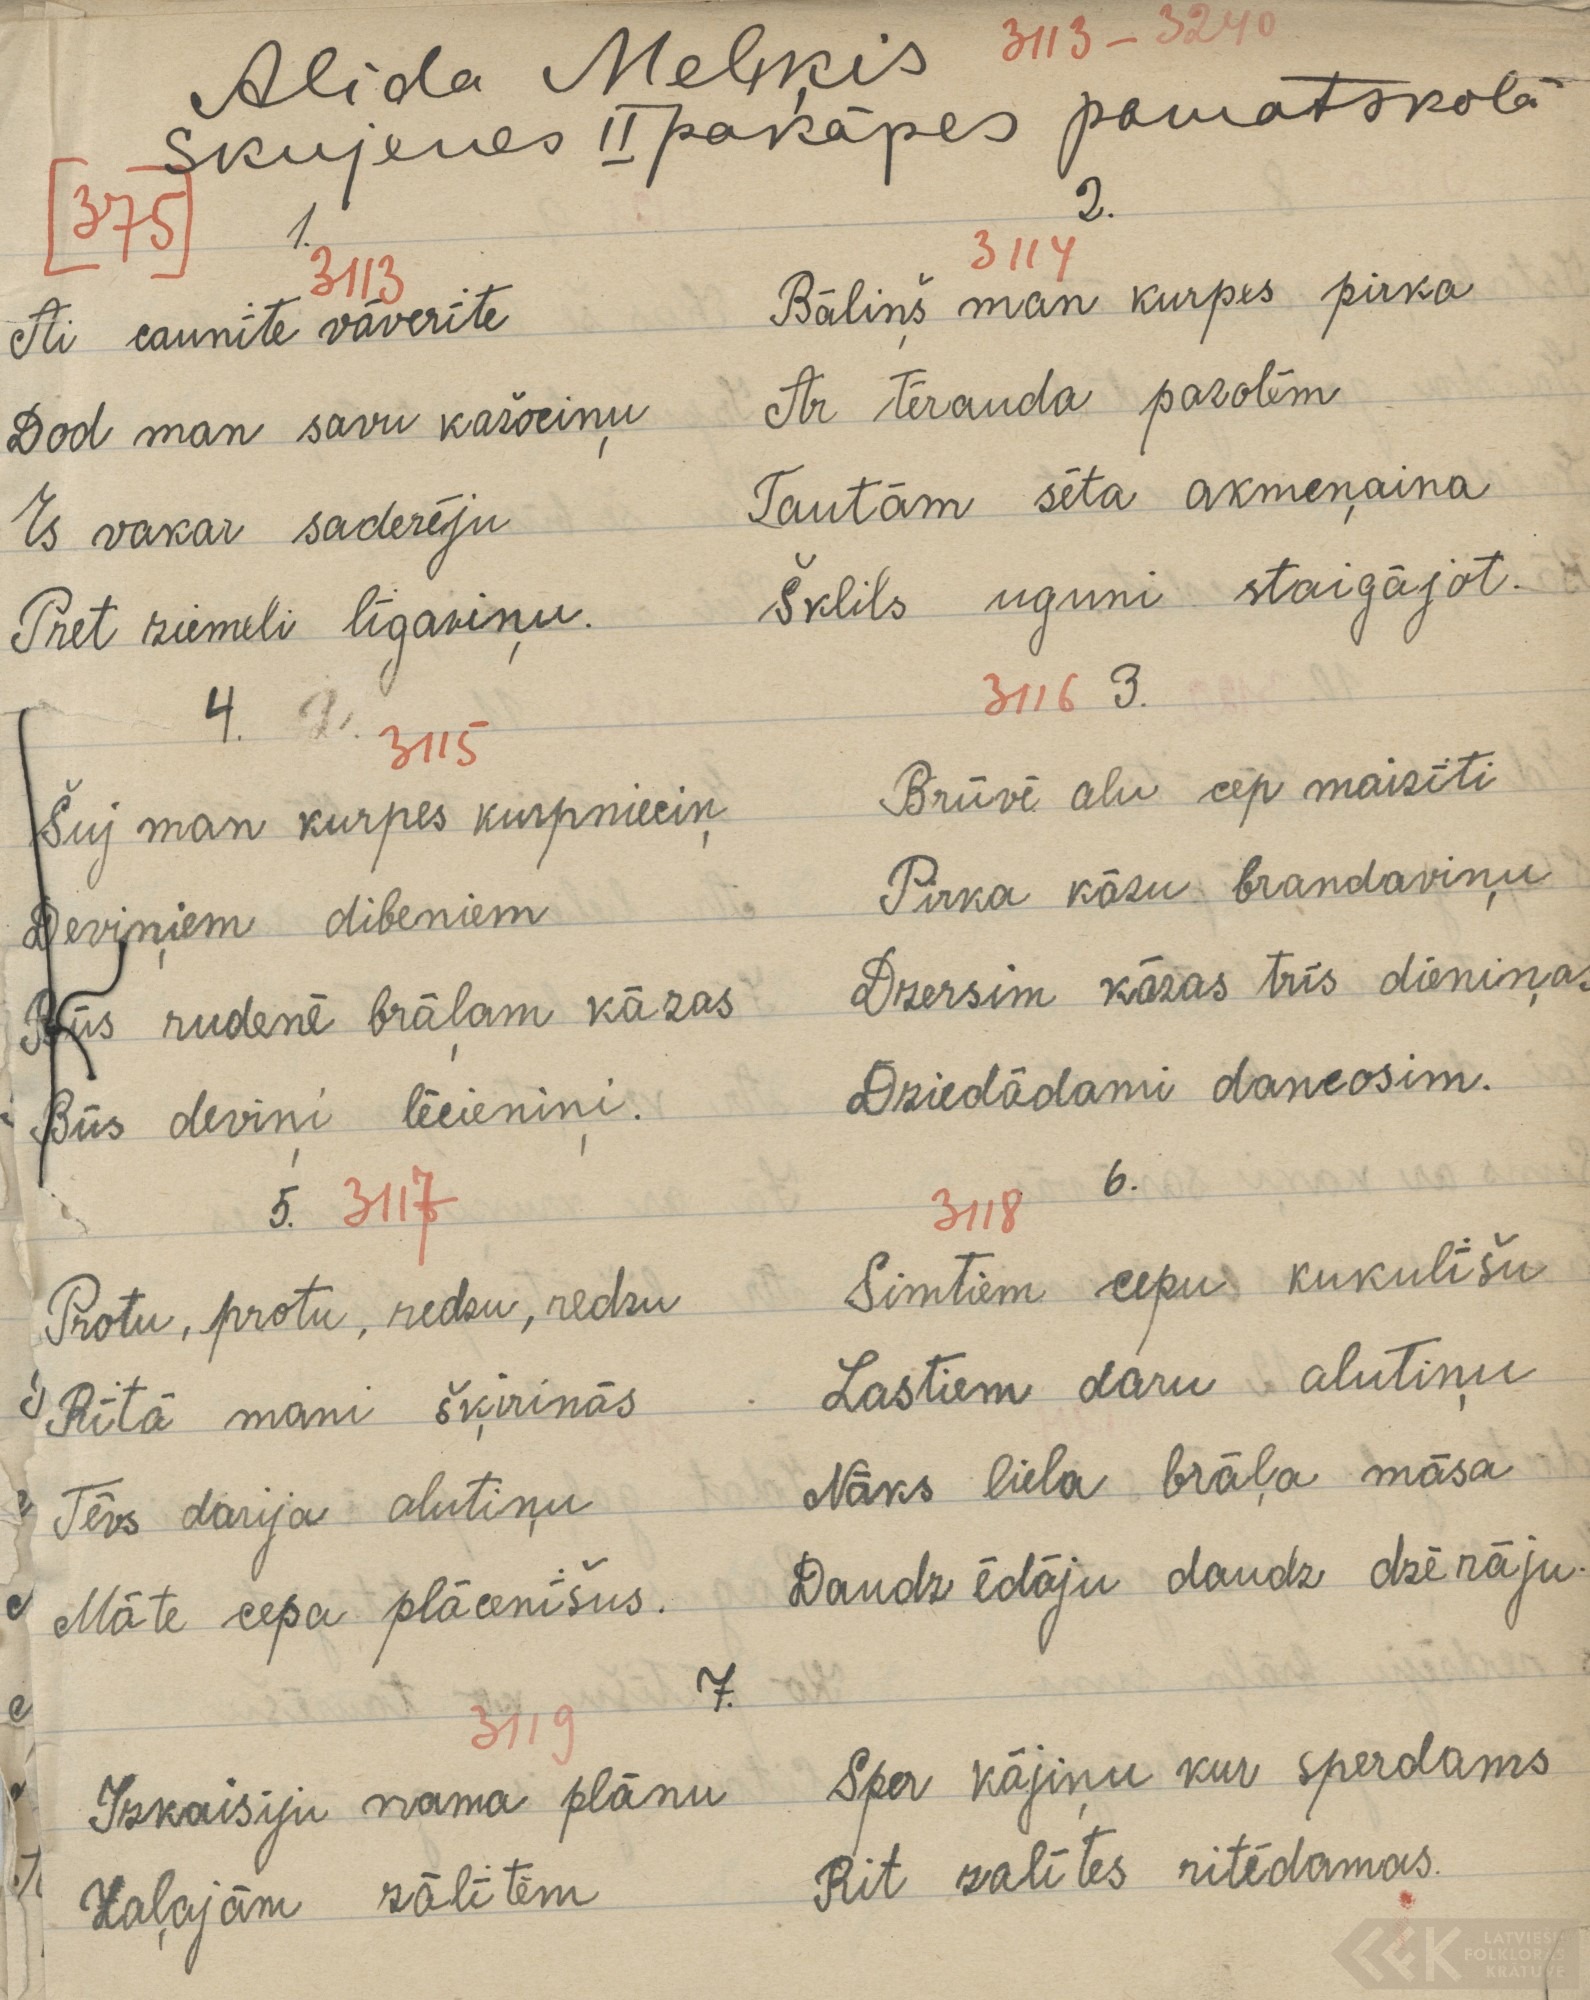 Alida Meļķis 3113 – 3240
Skujenes II pakāpes pamatskolā
[375]
1.
3113
Ai caunīte vāverīte
Dod man savu kažociņu
Es vakar saderēju
Pret ziemeli līgaviņu.
2.
3114
Bāliņš man kurpes pirka
Ar tērauda pazolēm
Tautām sēta akmeņaina
Šķlils uguni staigājot.
4.
3115
Šuj man kurpes kurpnieciņ
Deviņiem dibeniem
Būs rudenē brāļam kāzas
Būs deviņi lēcieniņi.
3116 3.
Brūvē alu cep maizīti
Pirka kāzu brandaviņu
Dzersim kāzas trīs dieniņas
Dziedādami dancosim.
5. 3117
Protu, protu, redzu, redzu
Rītā mani šķirinās
Tēvs darija alutiņu
Māte cepa plācenīšus.
6.
3118
Simtiem cepu kukulīšu
Lastiem daru alutiņu
Nāks liela brāļa māsa
Daudz ēdāju daudz dzērāju.
7.
3119
Izkaisīju nama plānu
Zaļajām zālītēm
Sper kājiņu kur sperdams
Rit zalītes ritēdamas.
LATVIEŠU
FOLKLORAS
KRĀTUVE